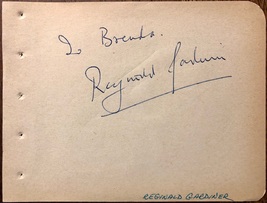 To Brenda.
Reginald Gardiner
REGINALD GARDINER